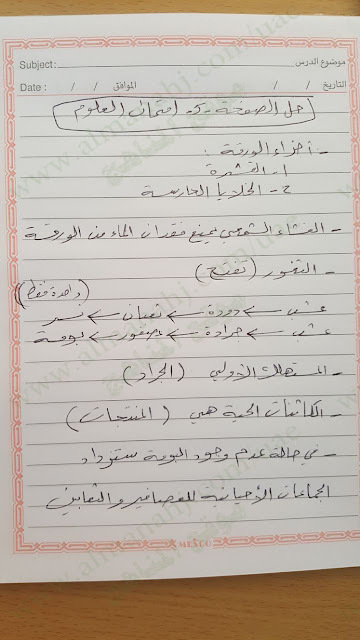 Subject: موضوع الدرس
Date : / / الموافق / / التاريخ
حل الصفحة ٢٥ امتحان العلوم
- أجزاء الورقة :
١- القشرة
٢- الخلايا الحارسة
- الغشاء الشمعي يمنع فقدان الماء من الورقة
- الثغور (تفتح)
(واحدة فقط)
عشب ← دودة ← ثعبان ← نسر
عشب ← جرادة ← عصفور ← بومة
- المستهلك الأولي (الجراد)
- الكائنات الحية هي (المنتجات)
- في حالة عدم وجود البومة ستزداد
الجماعات الأحيائية للعصافير والثعابين
MESCO
www.almanahj.com/uae